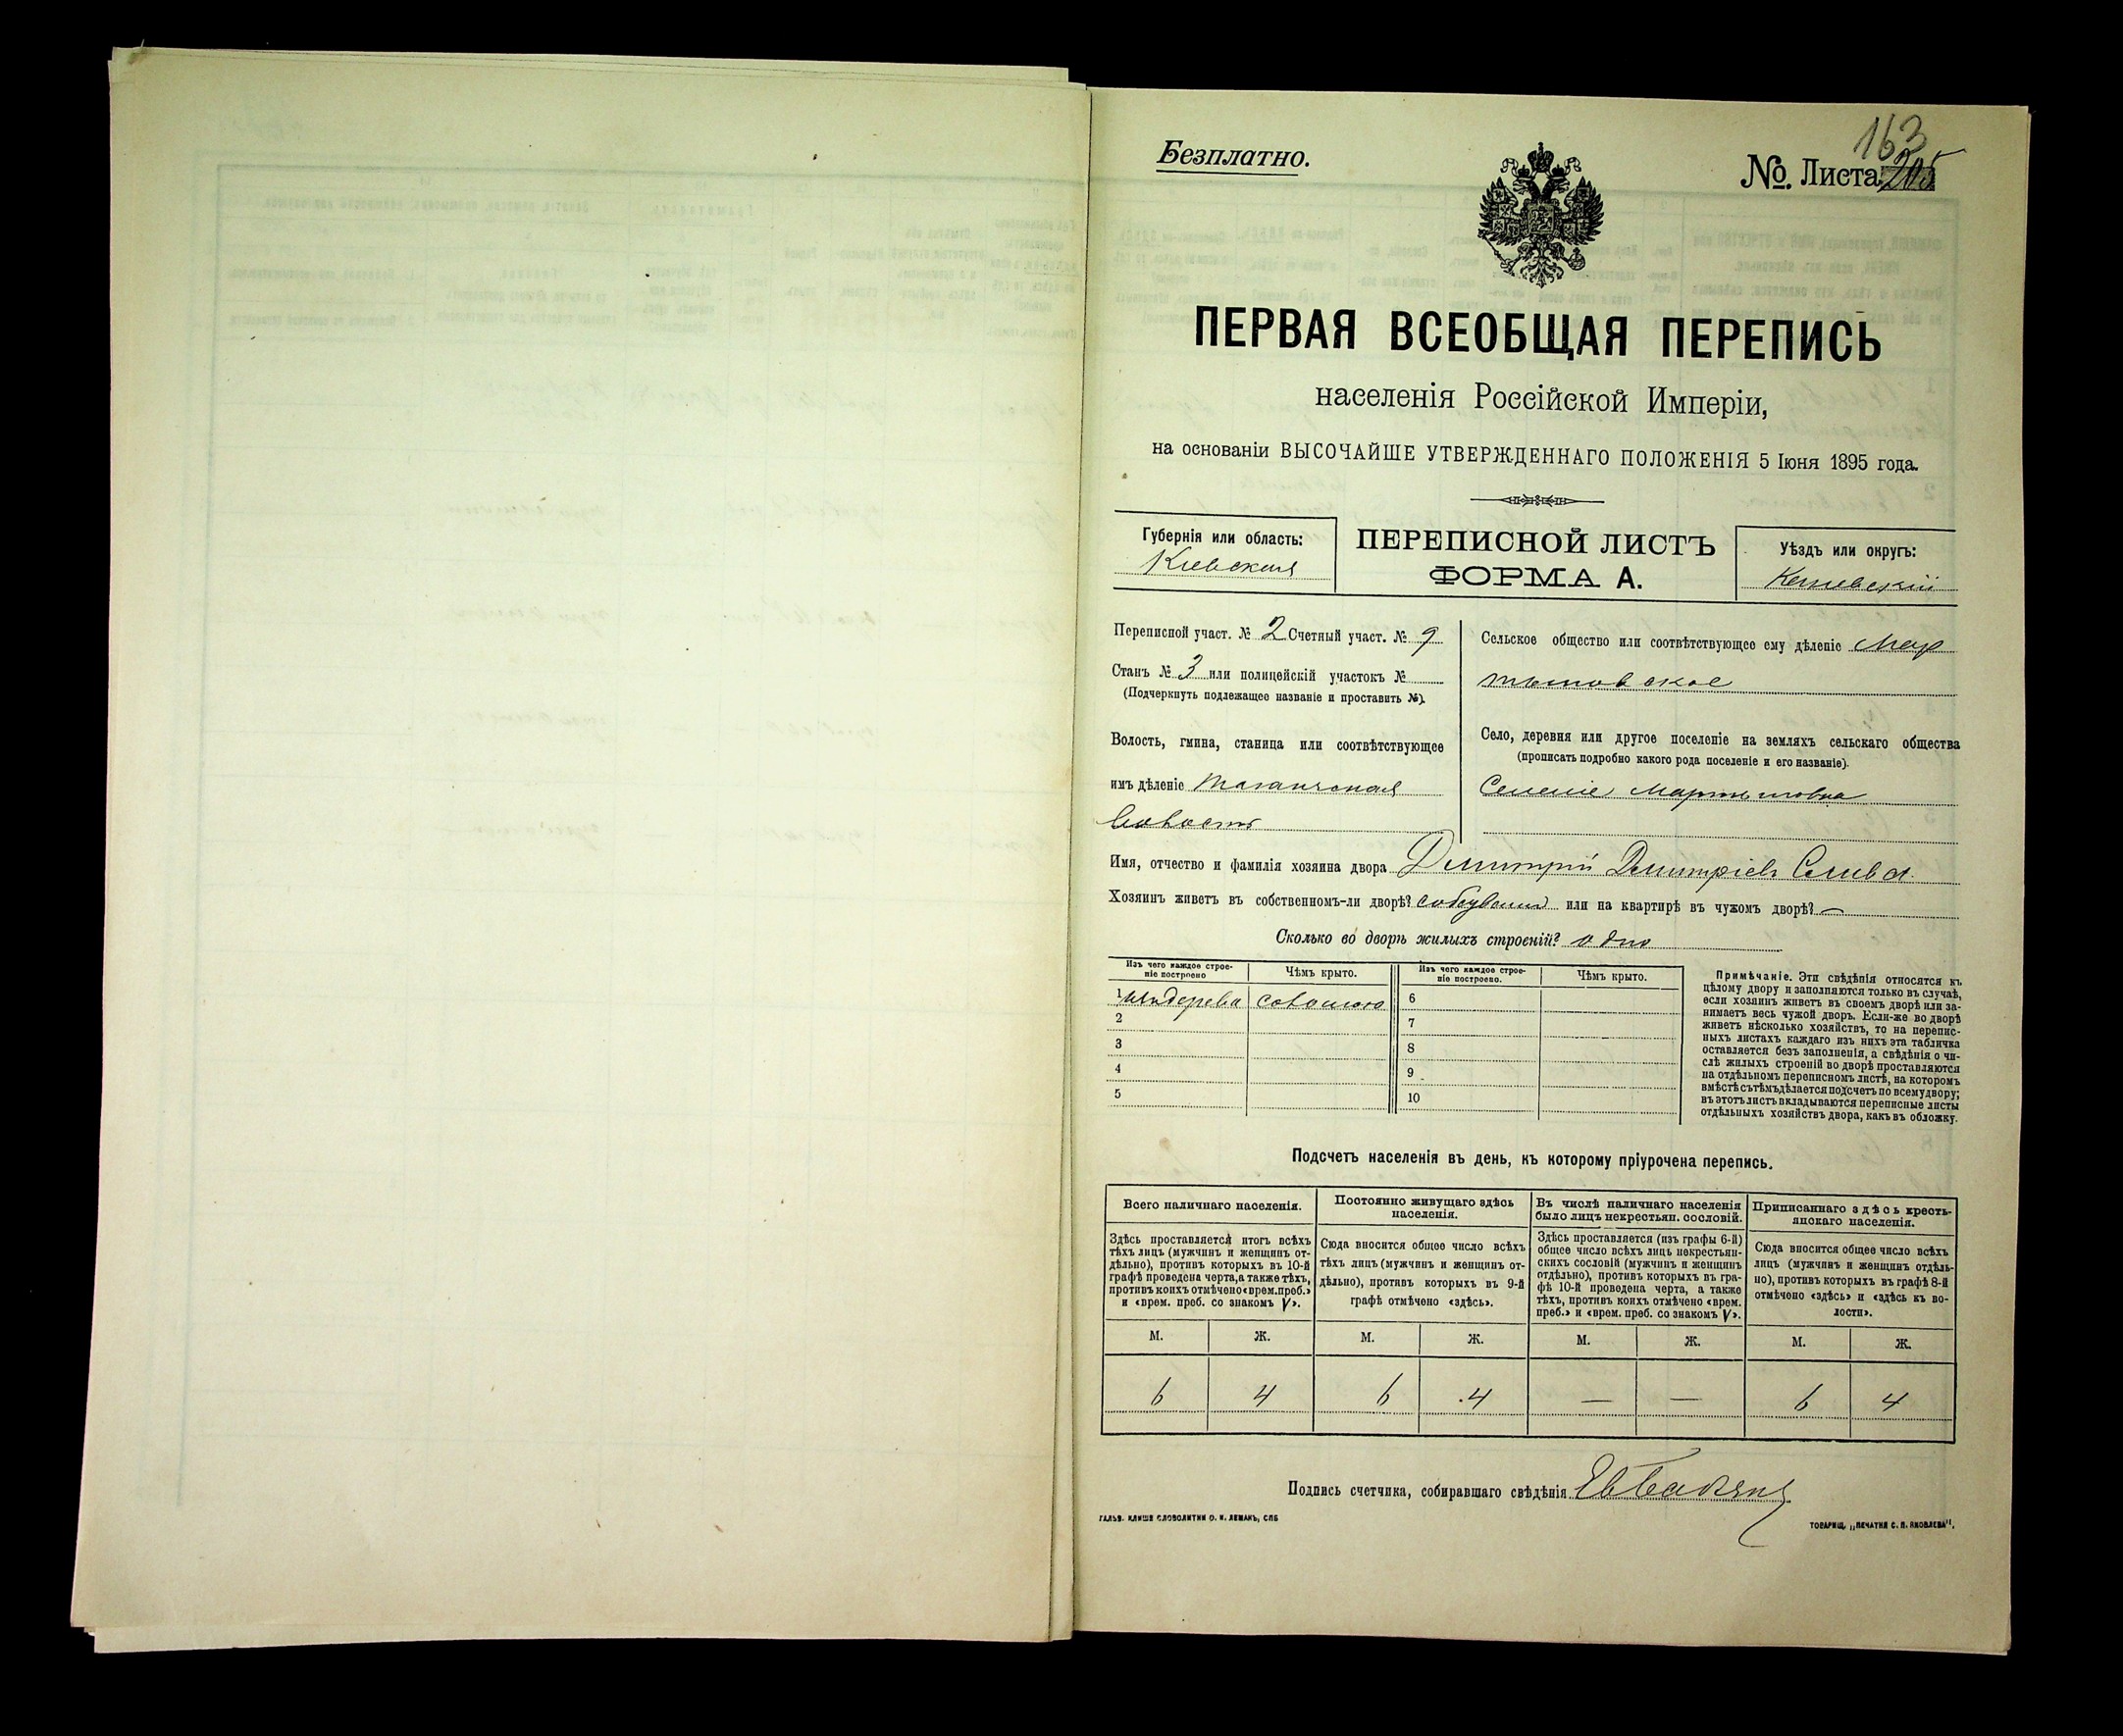 163
Безплатно.
№. Листа 205
ПЕРВАЯ ВСЕОБЩАЯ ПЕРЕПИСЬ
населенія Россійской Имперіи,
на основаніи ВЫСОЧАЙШЕ УТВЕРЖДЕННАГО ПОЛОЖЕНІЯ 5 Іюня 1895 года.
Губернія или область:
Кіевская
ПЕРЕПИСНОЙ ЛИСТЪ
ФОРМА А.
Уѣздъ или округъ:
Каневскій
Переписной участ. № 2 Счетный участ. № 9
Станъ № 3 или полицейскій участокъ №
(Подчеркнуть подлежащее названіе и проставить №).
Волость, гмина, станица или соотвѣтствующее
имъ дѣленіе Таганчская
волость
Сельское общество или соотвѣтствующее ему дѣленіе Мар
тыновское
Село, деревня или другое поселеніе на земляхъ сельскаго общества
(прописать подробно какого рода поселеніе и его названіе).
Селеніе Мартыновка
Имя, отчество и фамилія хозяина двора Дмитрій Дмитріевъ Слива
Хозяинъ живетъ въ собственномъ-ли дворѣ? или на квартирѣ въ чужомъ дворѣ? —
Сколько во дворѣ жилыхъ строеній? одно
Изъ чего каждое строе-
ніе построено
Чѣмъ крыто.
Изъ чего каждое строе-
ніе построено.
Чѣмъ крыто.
1 изъ дерева соломою
2
3
4
5
6
7
8
9
10
Примѣчаніе. Эти свѣдѣнія относятся къ
цѣлому двору и заполняются только въ случаѣ,
если хозяинъ живетъ въ своемъ дворѣ или за-
нимаетъ весь чужой дворъ. Если-же во дворѣ
живетъ нѣсколько хозяйствъ, то на перепис-
ныхъ листахъ каждаго изъ нихъ эта табличка
оставляется безъ заполненія, а свѣдѣнія о чи-
слѣ жилыхъ строеній во дворѣ проставляются
на отдѣльномъ переписномъ листѣ, на которомъ
вмѣстѣ съ тѣмъ дѣлается подсчетъ по всему двору;
въ этотъ листъ вкладываются переписные листы
отдѣльныхъ хозяйствъ двора, какъ въ обложку.
Подсчетъ населенія въ день, къ которому пріурочена перепись.
Всего наличнаго населенія.
Здѣсь проставляется итогъ всѣхъ
тѣхъ лицъ (мужчинъ и женщинъ от-
дѣльно), противъ которыхъ въ 10-й
графѣ проведена черта, а также тѣхъ,
противъ коихъ отмѣчено «врем. преб.»
и «врем. преб. со знакомъ V».
Постоянно живущаго здѣсь
населенія.
Сюда вносится общее число всѣхъ
тѣхъ лицъ (мужчинъ и женщинъ от-
дѣльно), противъ которыхъ въ 9-й
графѣ отмѣчено «здѣсь».
Въ числѣ наличнаго населенія
было лицъ некрестьян. сословій.
Здѣсь проставляется (изъ графы 6-й)
общее число всѣхъ лицъ некрестьян-
скихъ сословій (мужчинъ и женщинъ
отдѣльно), противъ которыхъ въ гра-
фѣ 10-й проведена черта, а также
тѣхъ, противъ коихъ отмѣчено «врем.
преб.» и «врем. преб. со знакомъ V».
Приписаннаго здѣсь кресть-
янскаго населенія.
Сюда вносится общее число всѣхъ
лицъ (мужчинъ и женщинъ отдѣль-
но), противъ которыхъ въ графѣ 8-й
отмѣчено «здѣсь» и «здѣсь къ во-
лости».
М. Ж. М. Ж. М. Ж. М. Ж.
6 4 6 4 — — 6 4
Подпись счетчика, собиравшаго свѣдѣнія
ГАЛЬВ. КЛИШЕ СЛОВОЛИТНИ О. И. ЛЕМАНЪ, СПБ
ТОВАРИЩ. „ПЕЧАТНЯ С. П. ЯКОВЛЕВА“.